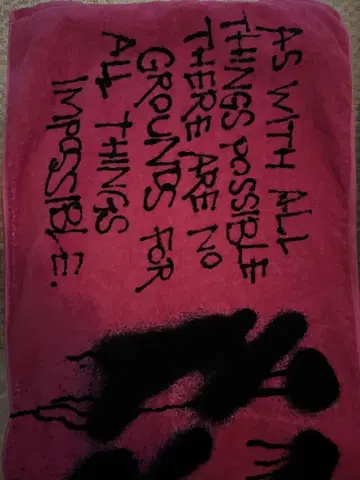 AS WITH ALL
THINGS POSSIBLE
THERE ARE NO
GROUNDS FOR
ALL THINGS
IMPOSSIBLE.